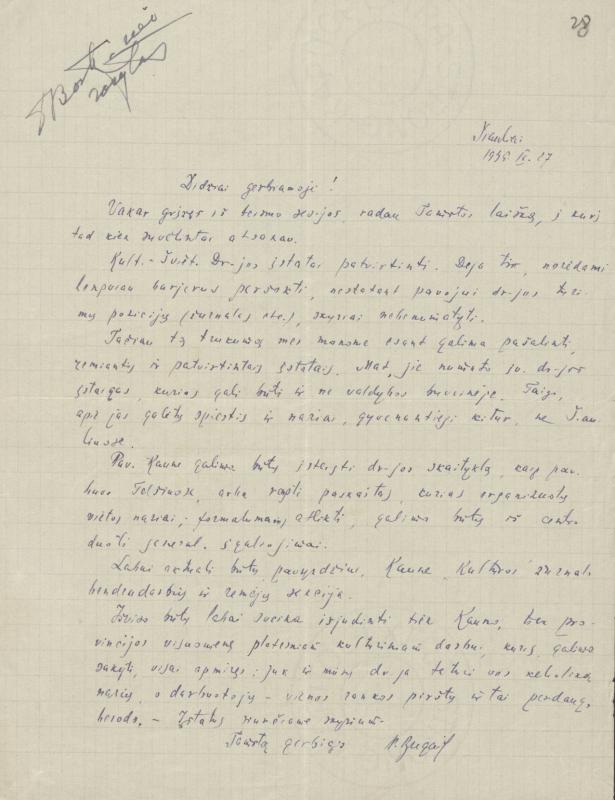 28
Šiauliai
Didžiai gerbiamoji!
Vakar grįžęs iš teismo sesijos, radau Tamstos laišką, į kurį
tad kiek suvėlintai atsakau.
Kult.-Šviet. Dr-jos įstatai patvirtinti. Deja tik, norėdami
lengviau barjerus peršokti, nestatant pavojui dr-jos turi-
mų pozicijų (žurnalas etc.), skyriai nebenumatyti.
Tačiau tą trukumą mes manome esant galima pašalinti,
remiantis ir patvirtintais įstatais. Mat, jie numato dr-jos
įstaigas, kurios gali būti ir ne valdybos buveinėje. Taigi,
apie jas galėtų spiestis ir nariai, gyvenantieji kitur, ne Šiau-
liuose.
Pav. Kaune galima būtų įsteigti dr-jos skaityklą, kaip
buvo Telšiuose, arba rengti paskaitas, kurias organizuotų
vietos nariai; formalumams atlikti, galima būtų iš centro
duoti general. įgaliojimai.
Labai aktuali būtų, pavyzdžiui, Kaune „Kultūros" žurnalo
bendradarbių ir rėmėjų sekcija.
Iš viso būtų labai sveika išjudinti tiek Kauno, tiek pro-
vincijos visuomenę platesniam kultūriniam darbui, kuris, galima
sakyti, visai apmiręs: juk ir mūsų dr-ja teturi vos keholiką
narių, o darbuotojų – vienos rankos pirštų ir tai perdaug
berods. – Įstatus siunčiame
Tamstą gerbiąs